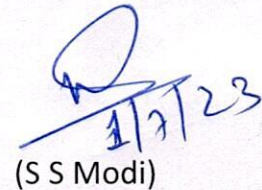 1/7/23
(S S Modi)